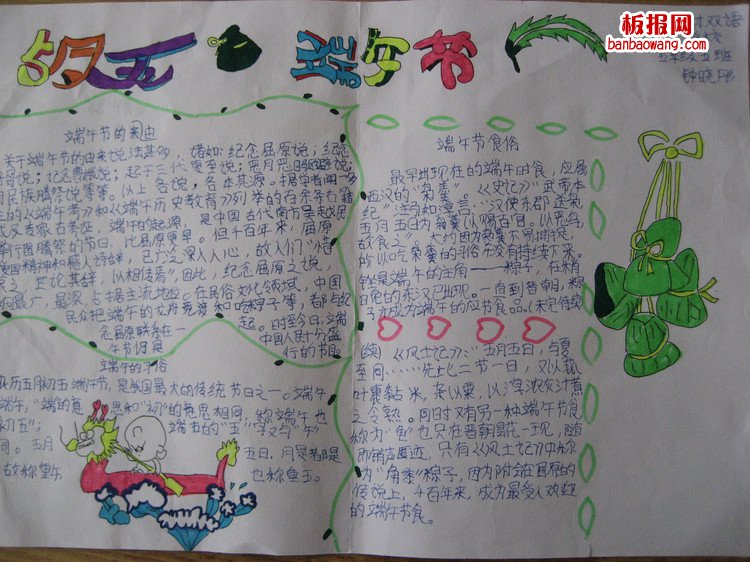 端午节
板报网
banbaowang.com
五班
钟晓彤
端午节的来由
关于端午节的由来说法甚多，诸如：纪念屈原说；纪念
起于三代夏至说；恶月恶日驱避说；
民族图腾祭说等等。以上各说，各本其源。据
的《端午考》和《端午历史教育》列举的百余条古籍
及专家考古考证，端午的起源，是中国古代南方吴越民
举行图腾祭的节日，比屈原更早。但千百年来，屈原
爱国精神和感人诗辞，已广泛深入人心，故人们“惜
哀之，世论其辞，以相传焉”因此，纪念屈原之说，
影响最广，最深，占据主流地位。在民俗文化领域，中国
民众把端午的龙舟竞渡和吃粽子等，都与纪
念屈原联系在一起。时至今日，端
午节仍是中国人民十分盛
行的节日。
端午的习俗
农历五月初五端午节，是我国最大的传统节日之一。端午
端午，“端”的意思和“初”的意思相同，称端午也
初五”；端五的“五”字又与“午”
同。五月五日，月是都是
故称重午也称重五。
端午节食俗
最早出现在的端午时食，应属
西汉的“枭羹”。《史记》“武帝本
纪”注引如淳言：“汉使东郡送枭
五月五日为枭羹以赐百官。以恶鸟
故食之”。大约因为枭不易捕捉，
所以吃枭羹的习俗不没有持续下来。
是端午的主角——粽子，在稍
的东汉出现。一直到晋朝，粽
子成为端午的应节食品。（未完待续）
(续)《风土记》：“五月五日，与夏
至同……先此二节一日，又以菰
叶裹黏米，杂以粟，以淳浓灰汁煮
之令熟。同时又有另一种端午节食
称为“龟”也只在晋朝昙花一现，随
即销声匿迹，只有《风土记》中称
为“角黍”粽子，因为附会在屈原的
传说上，千百年来，成为最受人欢迎
的端午节食。